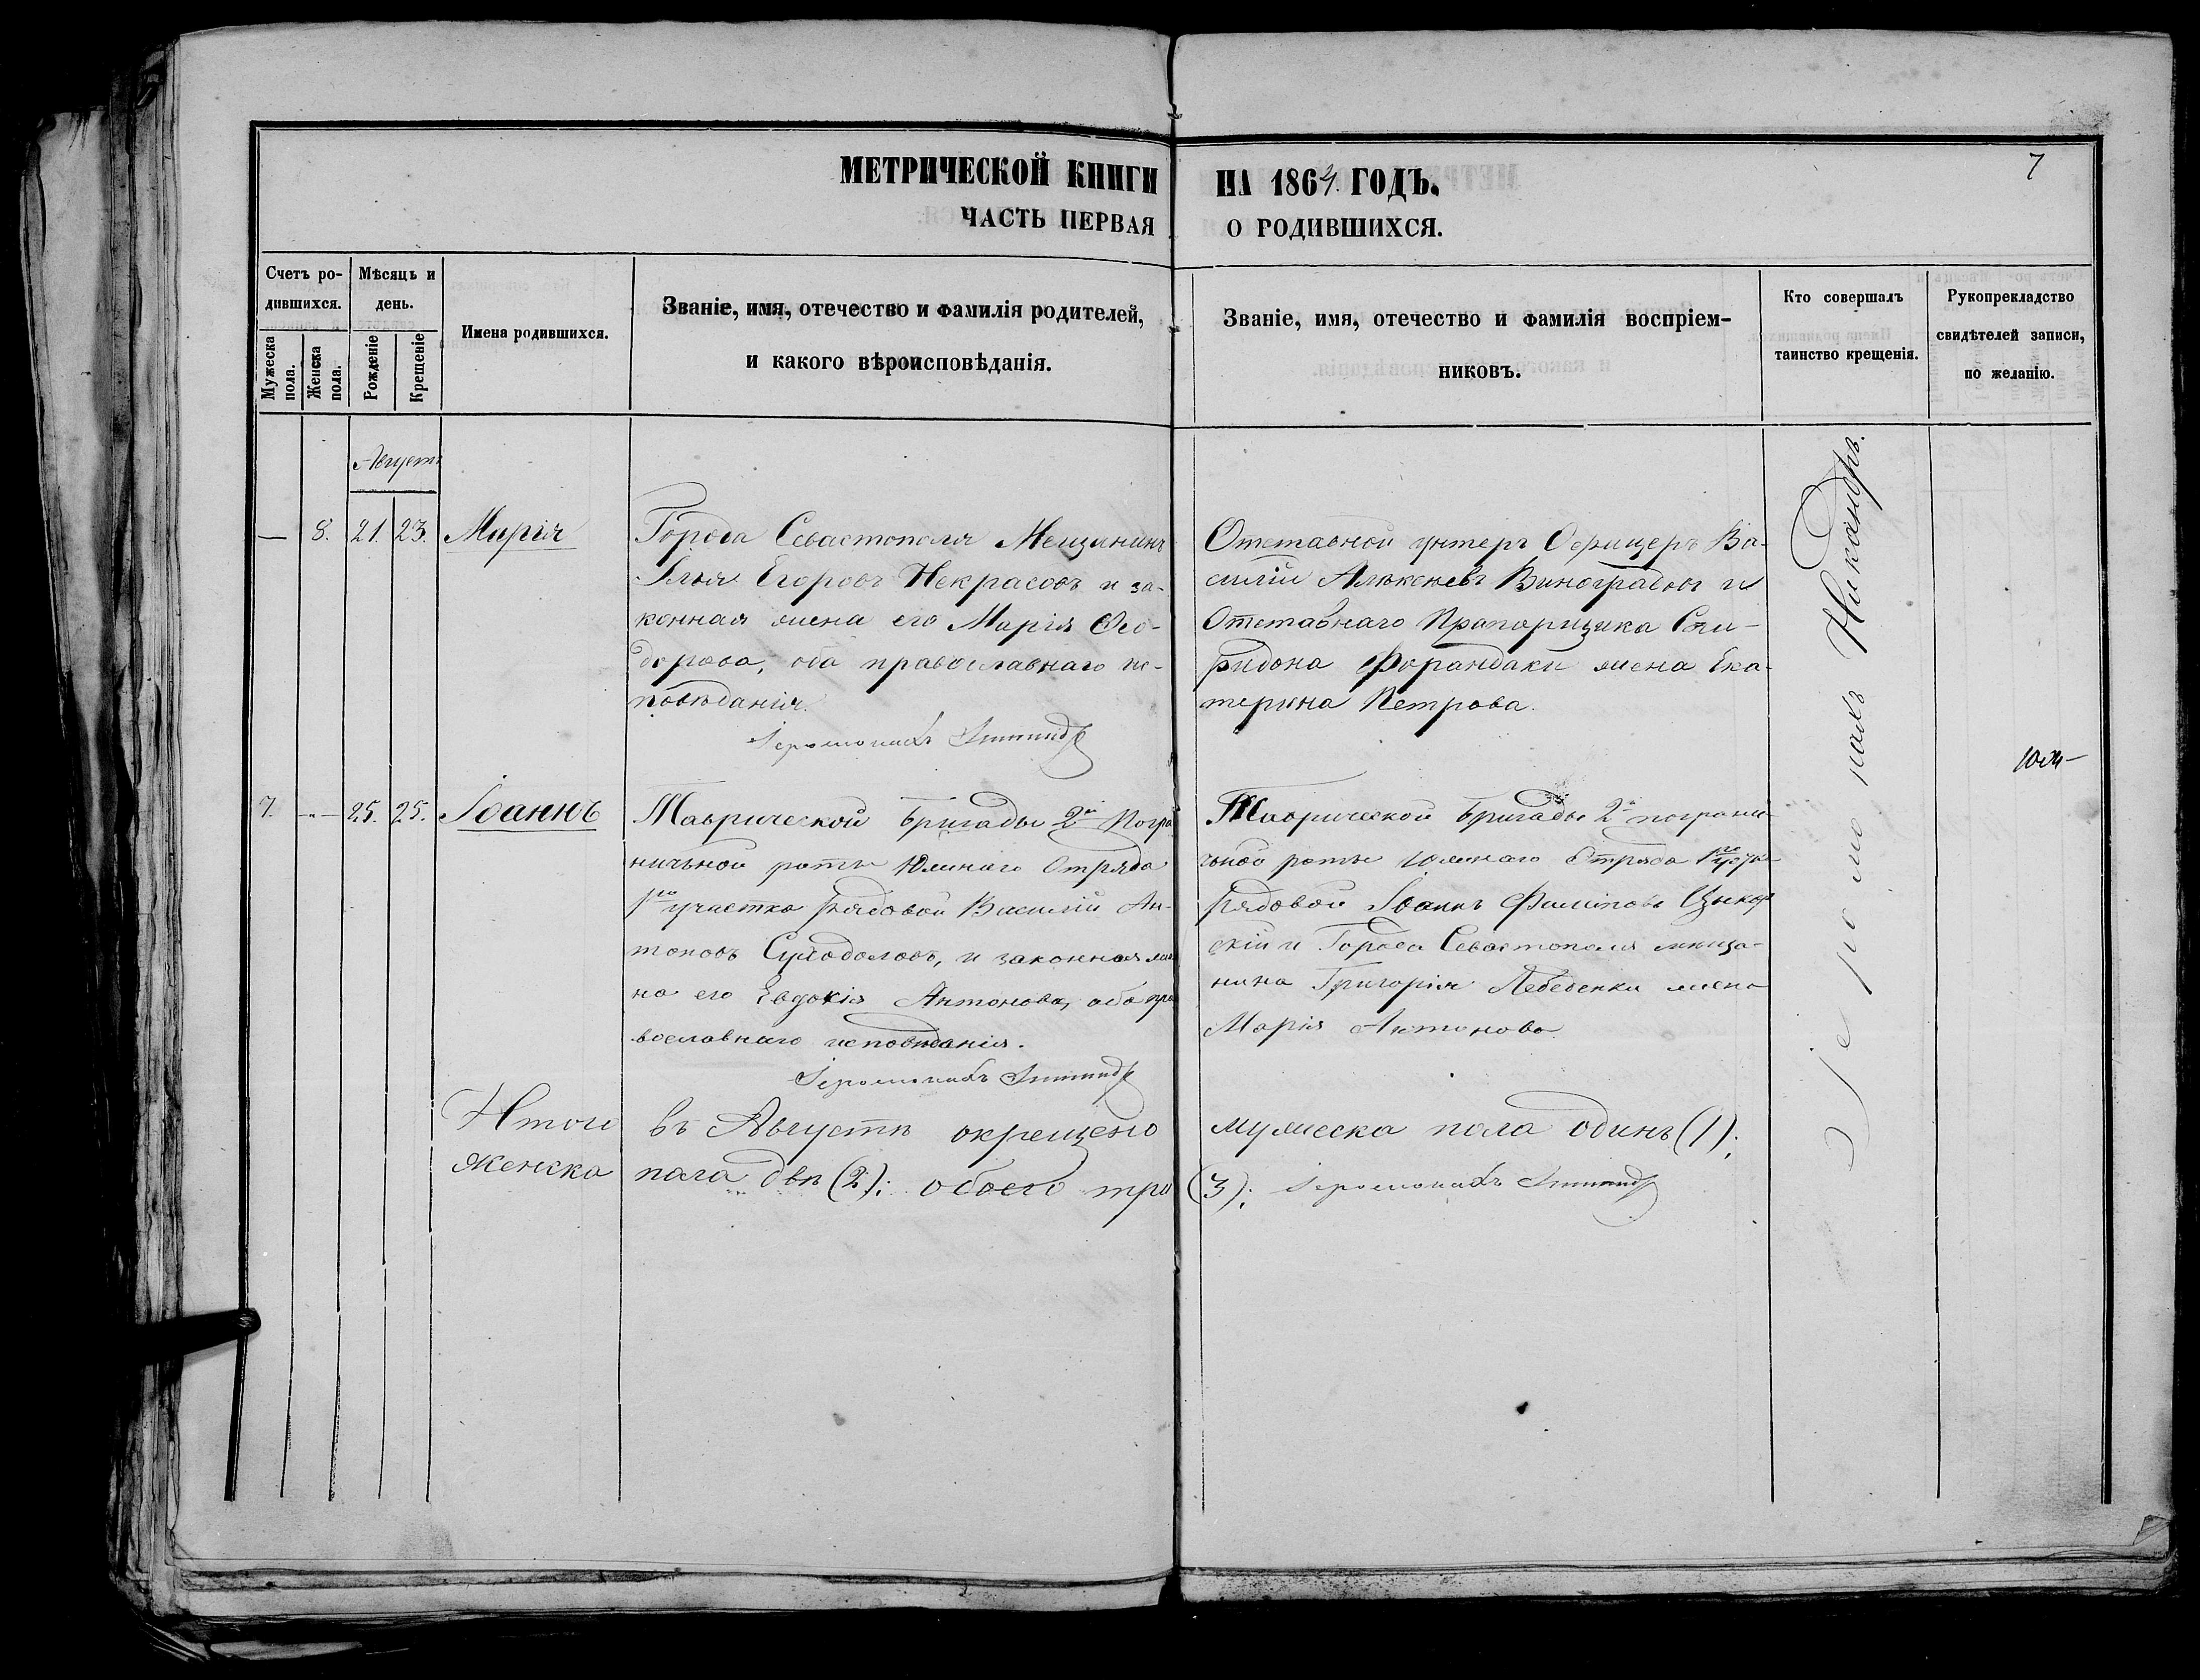 7
МЕТРИЧЕСКОЙ КНИГИ НА 1864. ГОДЪ.
ЧАСТЬ ПЕРВАЯ О РОДИВШИХСЯ.
Счетъ ро-
дившихся.
Мужеска
пола.
Женска
пола.
Мѣсяцъ и
день.
Рожденіе
Крещеніе
Имена родившихся.
Званіе, имя, отечество и фамилія родителей,
и какого вѣроисповѣданія.
Званіе, имя, отечество и фамилія воспріем-
никовъ.
Кто совершалъ
таинство крещенія.
Рукоприкладство
свидѣтелей записи,
по желанію.
Августъ
— 8. 21. 23. Марія
Города Севастополя Мещанинъ
Илья Егоровъ Некрасовъ и за-
конная жена его Марія Ѳео-
дорова, оба православнаго ис-
повѣданія.
Іеромонахъ
Отставной унтеръ Офицеръ Ва-
силій Алексеевъ Виноградовъ и
Отставнаго Прапорщика Спи-
ридона Форандаки жена Ека-
терина Петрова.
Іеромонахъ Никандръ.
7. -"- 25. 25. Іоаннъ
Таврической бригады 2й Погра
ничьной роты Южнаго Отряда
1го участка рядовой Василій Ан-
тоновъ Суходоловъ, и законная же
на его Евдокія Антонова, оба пра
вославнаго исповѣданія.
Іеромонахъ
Таврической бригады 2й пограни-
чьной роты Южнаго Отряда 1го
рядовой Іоаннъ Филиповъ
скій и Города Севастополя меща-
нина Григорія Лебеденки жена
Марія Антонова.
Итого въ Августѣ окрещено мужеска пола одинъ (1);
женска пола двѣ (2); обоего три (3); Іеромонахъ